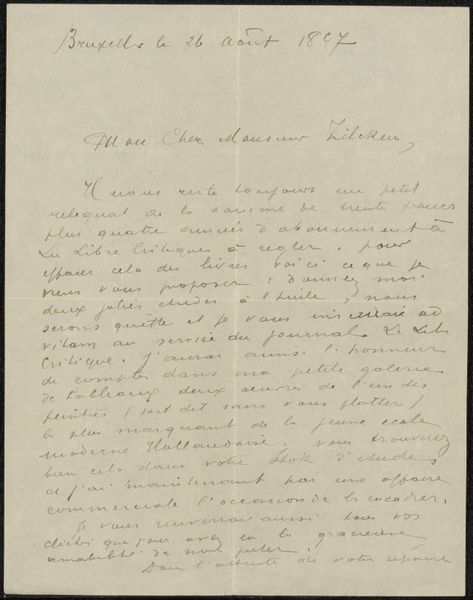 Bruxelles le 26 Août 1897
Mon Cher Monsieur Zilcken,
Il nous reste toujours un petit
reliquat de la somme de trente francs
plus quatre années d'abonnement à
La Libre Critique à régler. pour
effacer cela des livres voici ce que je
viens vous proposer : donnez moi
deux jolies études à l'huile, nous
serons quitte et je vous inscrirai ad
vitam au service du journal La Libre
Critique. J'aurai aussi l'honneur
de compter dans ma petite galerie
de tableaux deux oeuvres de l'un des
peintres (soit dit sans vous flatter)
le plus marquant de la jeune école
moderne Hollandaise. Vous trouverez
bien cela dans votre stock d'études
et j'ai maintenant par une affaire
commerciale l'occasion de les encadrer.
Je vous renverrai aussi tous vos
clichés que vous avez eu la gracieuse
amabilité de nous prêter.
Dans l'attente de votre réponse